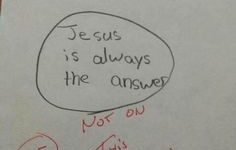 Jesus
is always
the answer
NOT ON
This